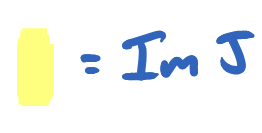 = Im J